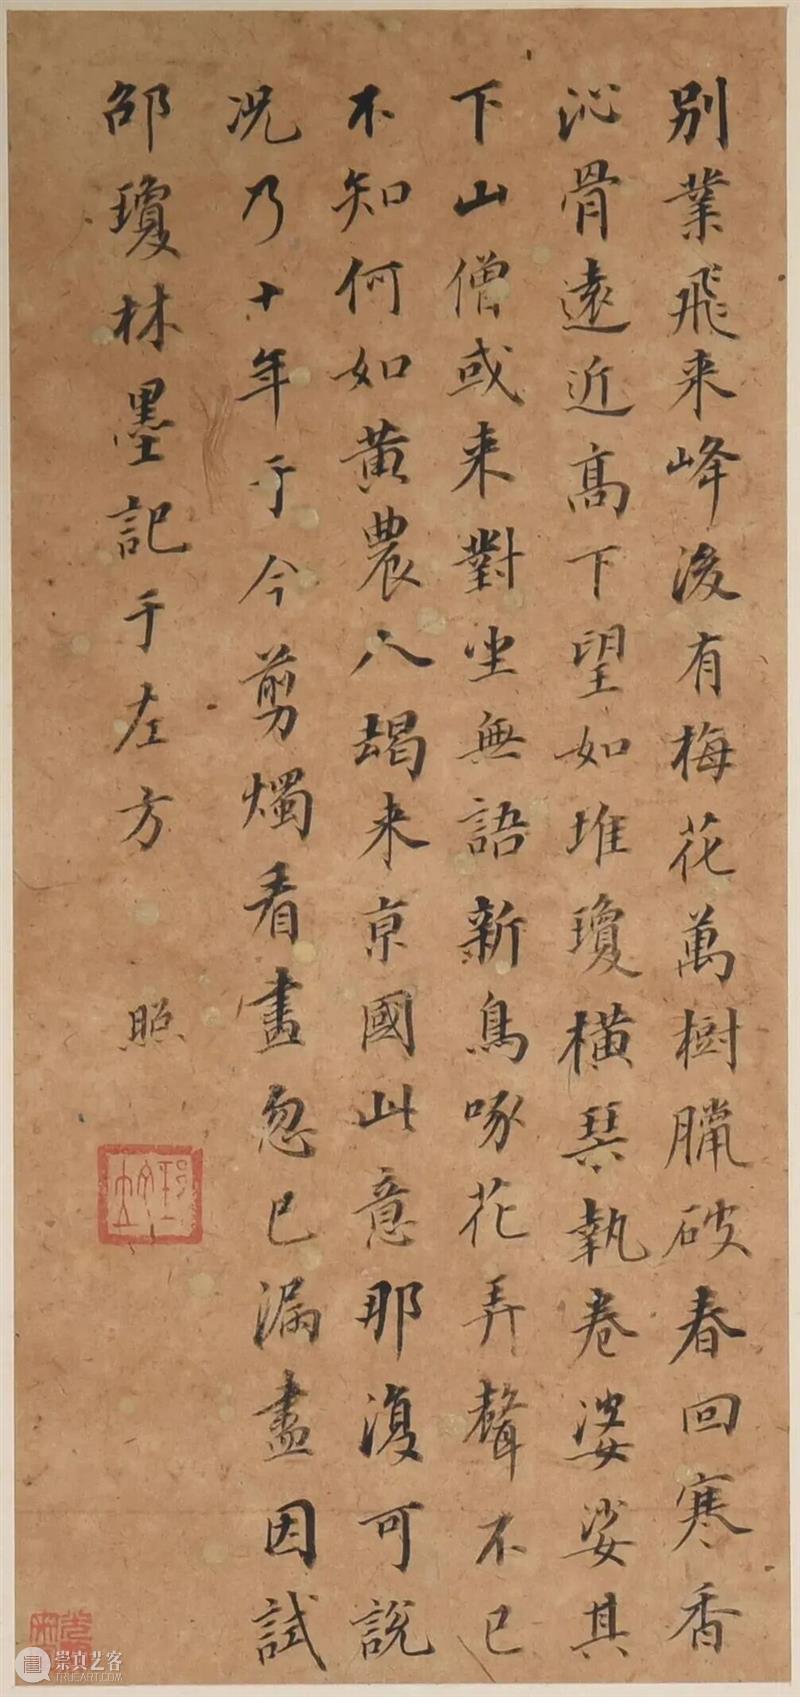 別業飛来峰後有梅花萬樹臘破春回寒香
沁骨遠近高下望如堆瓊橫琹執卷婆娑其
下山僧或来對坐無語新鳥啄花弄聲不已
不知何如黄農人朅来京國此意那復可說
况乃十年于今剪燭看畫忽已漏盡因試
邵瓊林墨記于左方
照
崇真艺客
TRUEART.COM